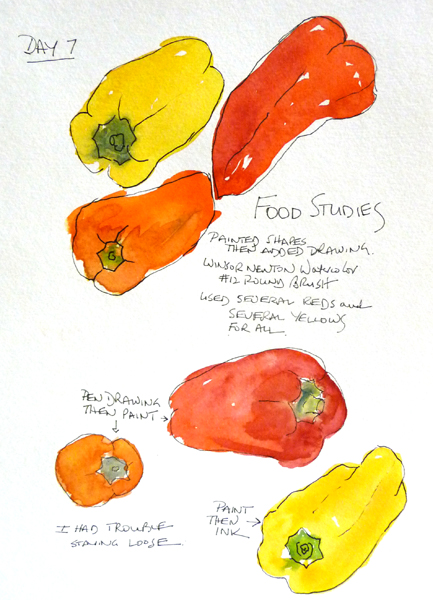 DAY 7
FOOD STUDIES
PAINTED SHAPES
THEN ADDED DRAWING.
WINSOR NEWTON WATERCOLOR
#12 ROUND BRUSH
USED SEVERAL REDS and
SEVERAL YELLOWS
FOR ALL.
PEN DRAWING
THEN PAINT
I HAD TROUBLE
STAYING LOOSE.
PAINT
THEN
INK